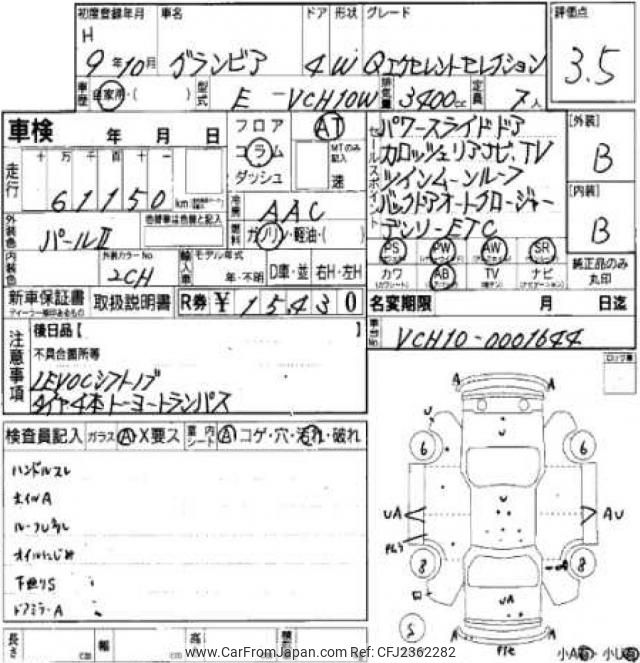 初度登録年月 車名 ドア 形状 グレード 評価点
H 9年10月 グランビア 4 W Qエクセレントセレクション 3.5
車歴 自家用・( ) 型式 E-VCH10W 排気量 3400cc 定員 7人
車検 年 月 日
フロア コラム ダッシュ
AT MTのみ記入 速
セールスポイント
パワースライドドア
カロッツェリアナビ、TV
ツインムーンルーフ
バックドアオートクロージャー
デンソーETC
[外装] B
[内装] B
走行 十 万 千 百 十 一
61150 km
冷房 AAC
燃料 ガソリン・軽油・( )
外装色 パールII 色替車は元色と記入
内装色 外装カラーNo 2CH
輸入車 モデル年式 年・不明 D車・並 右H・左H
PS PW AW SR
カワ AB TV ナビ
純正品のみ丸印
新車保証書 取扱説明書 R券 ¥15430
名変期限 月 日迄
車台No. VCH10-0001644
注意事項
後日品【
不具合箇所等
LEVOCシフトノブ
タイヤ4本トーヨートランパス
検査員記入 ガラス A・X要ス 車内シート A コゲ・穴・汚れ・破れ
ハンドルスレ
ホイルA
オイルにじみ
下廻りS
ドアミラーA
長さ cm 幅 cm 高 cm
A A
U U
6 6
U
UA AU
8 8
UA
S
A A
www.CarFromJapan.com Ref: CFJ2362282